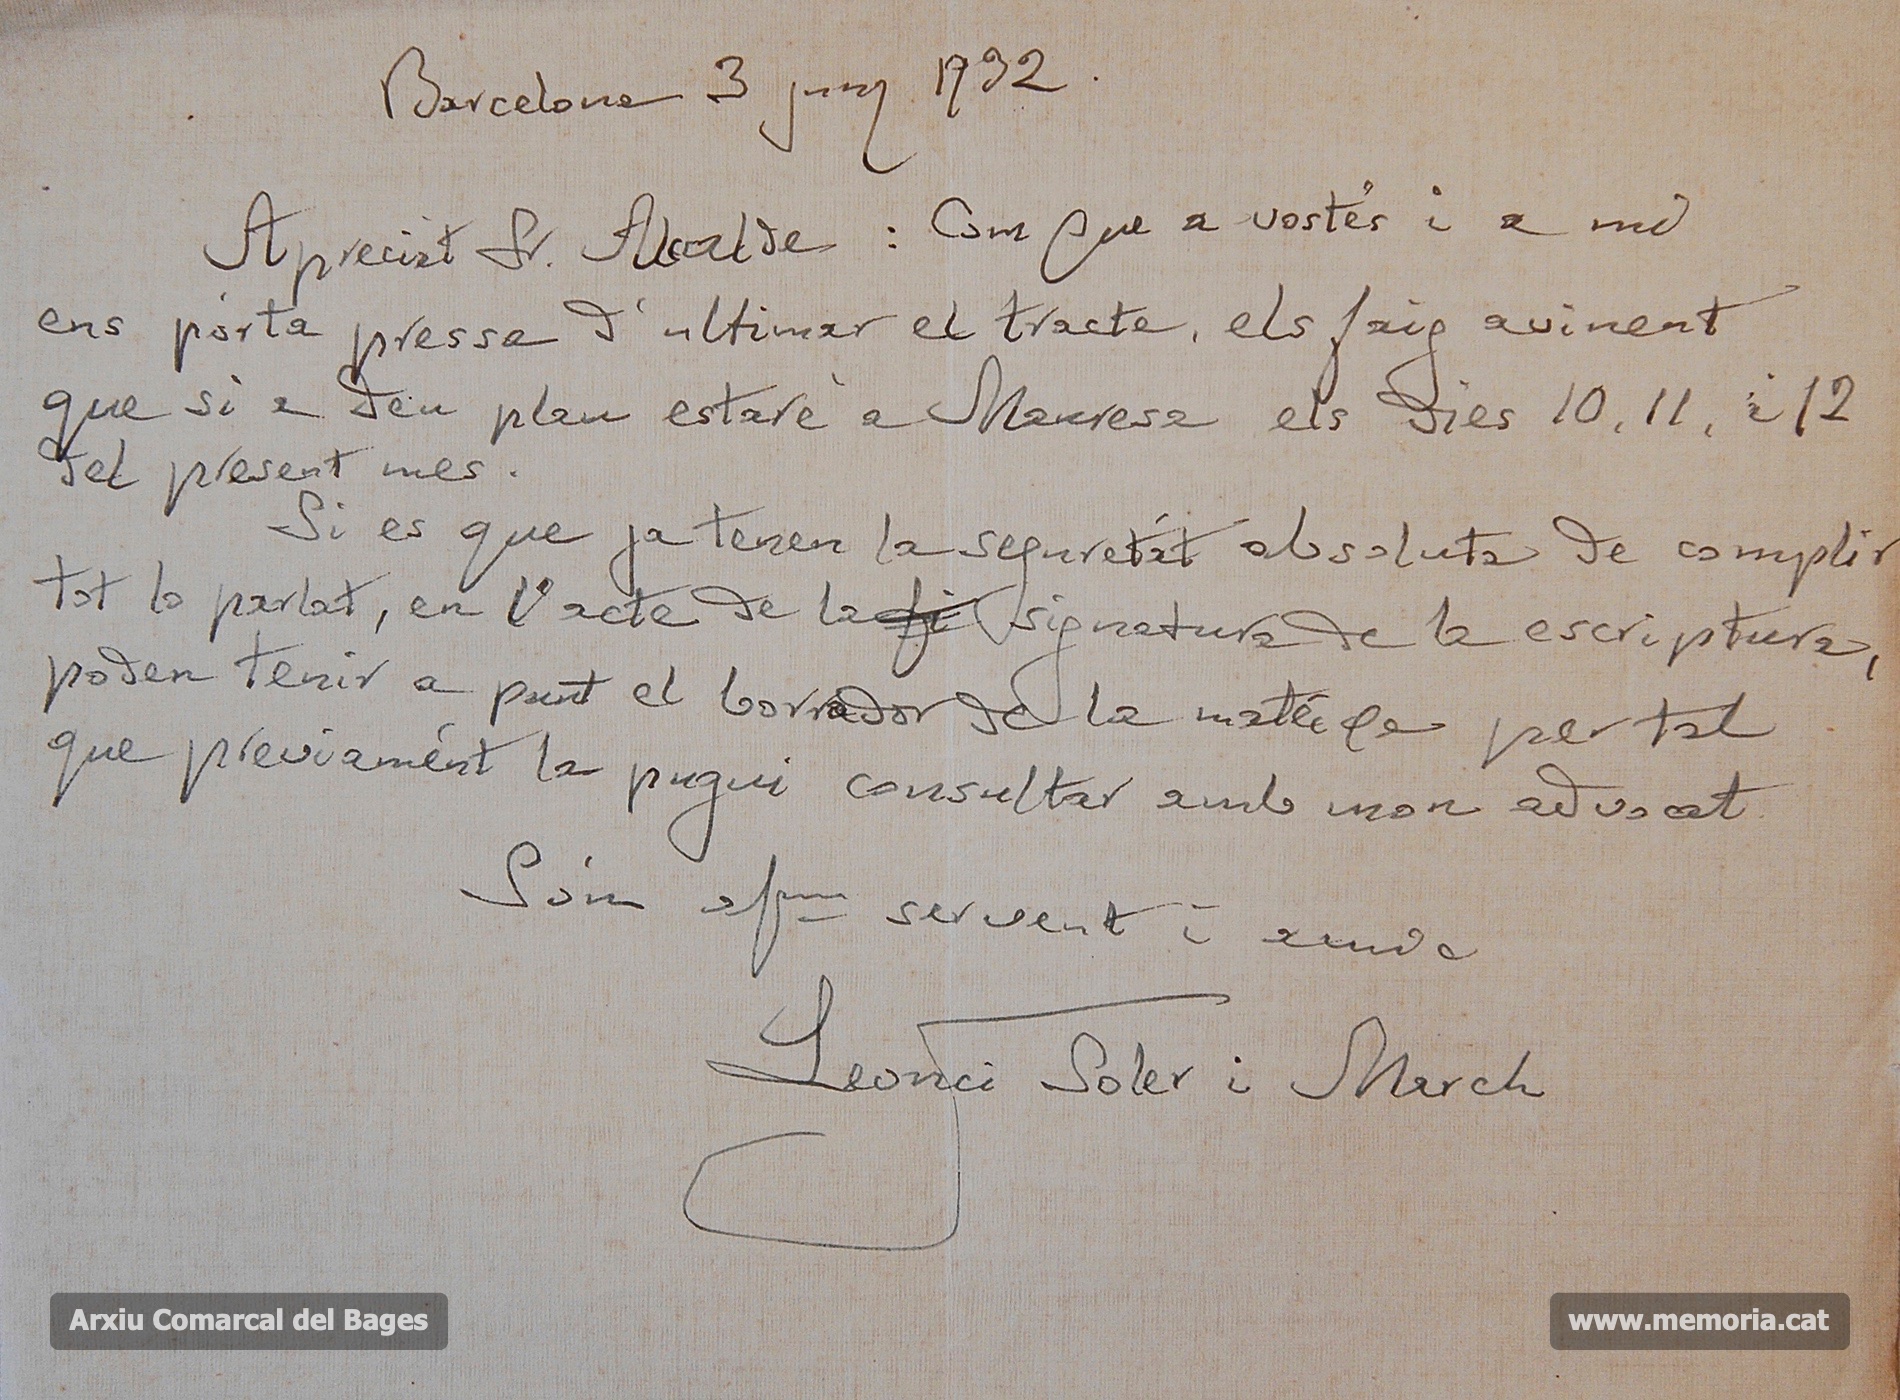 Barcelona 3 juny 1932.
Apreciat Sr. Alcalde : Com que a vostés i a mi
ens pórta pressa d'ultimar el tracte, els faig avinent
que si a Déu plau estaré a Manresa els dies 10, 11, i 12
del present mes.
Si es que ja tenen la seguretát absoluta de complir
tot lo parlat, en l'acte de la fi signatura de la escriptura,
poden tenir a punt el borrador de la mateixa per tal
que previamént la pugui consultar amb mon advocat
Sóm afm servent i amic
Leonci Soler i March
Arxiu Comarcal del Bages
www.memoria.cat